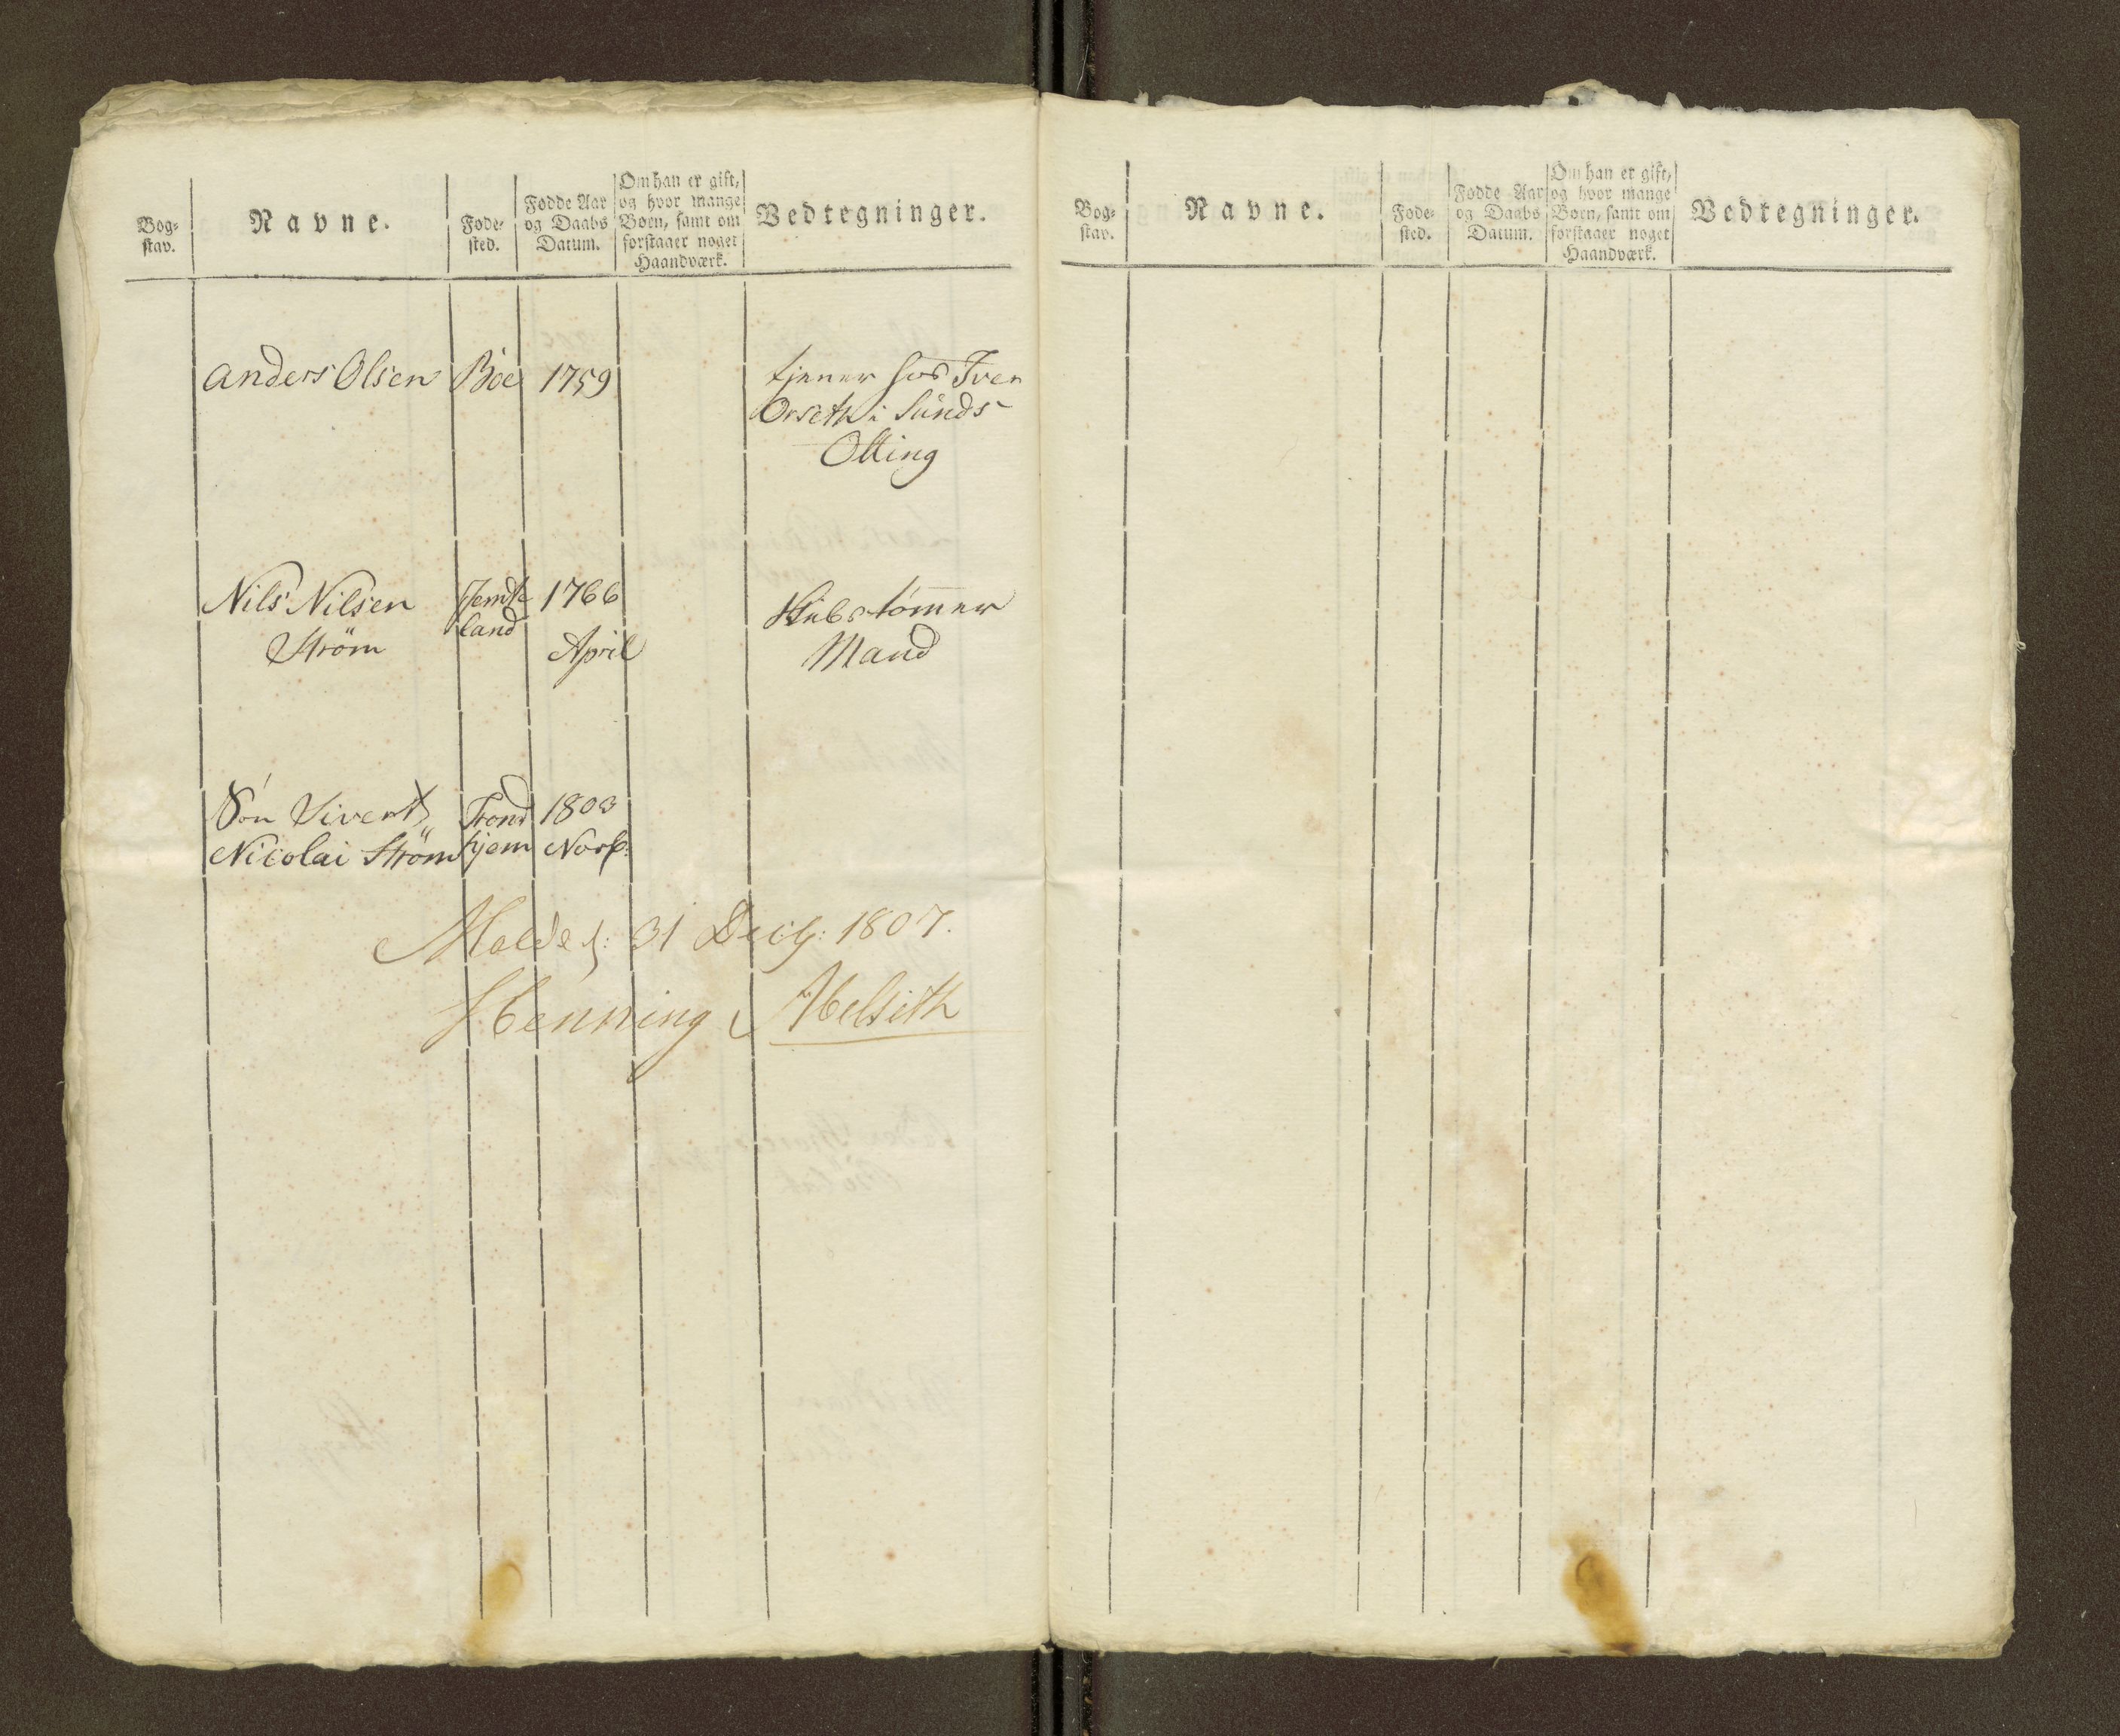 Bog-
stav.
Navne.
Føde-
sted.
Fødde Aar
og Daabs
Datum.
Om han er gift,
og hvor mange
Børn, samt om
forstaaer noget
Haandværk.
Vedtegninger.
Anders Olsen Böe 1759 tjener hos Iver
Orseth i Sunds
Otting
Nils Nilsen Jemte 1766 Skibstömer
Ström land April Mand
Sön Sivert Trond 1803
Nicolai Ström hjem Novb:
Molde d: 31 Decb: 1807.
Henning
Bog-
stav.
Navne.
Føde-
sted.
Fødde Aar
og Daabs
Datum.
Om han er gift,
og hvor mange
Børn, samt om
forstaaer noget
Haandværk.
Vedtegninger.